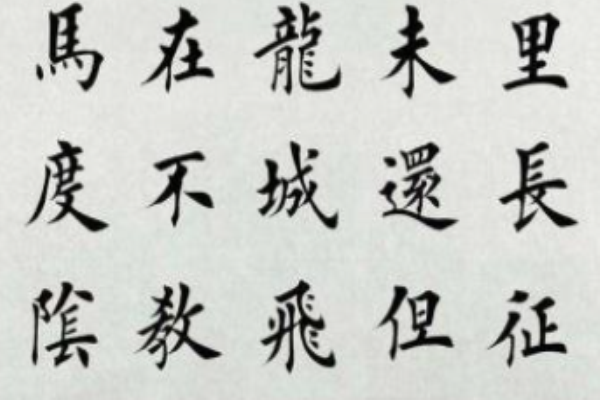 里長征
未還但
龍城飛
在不教
馬度陰